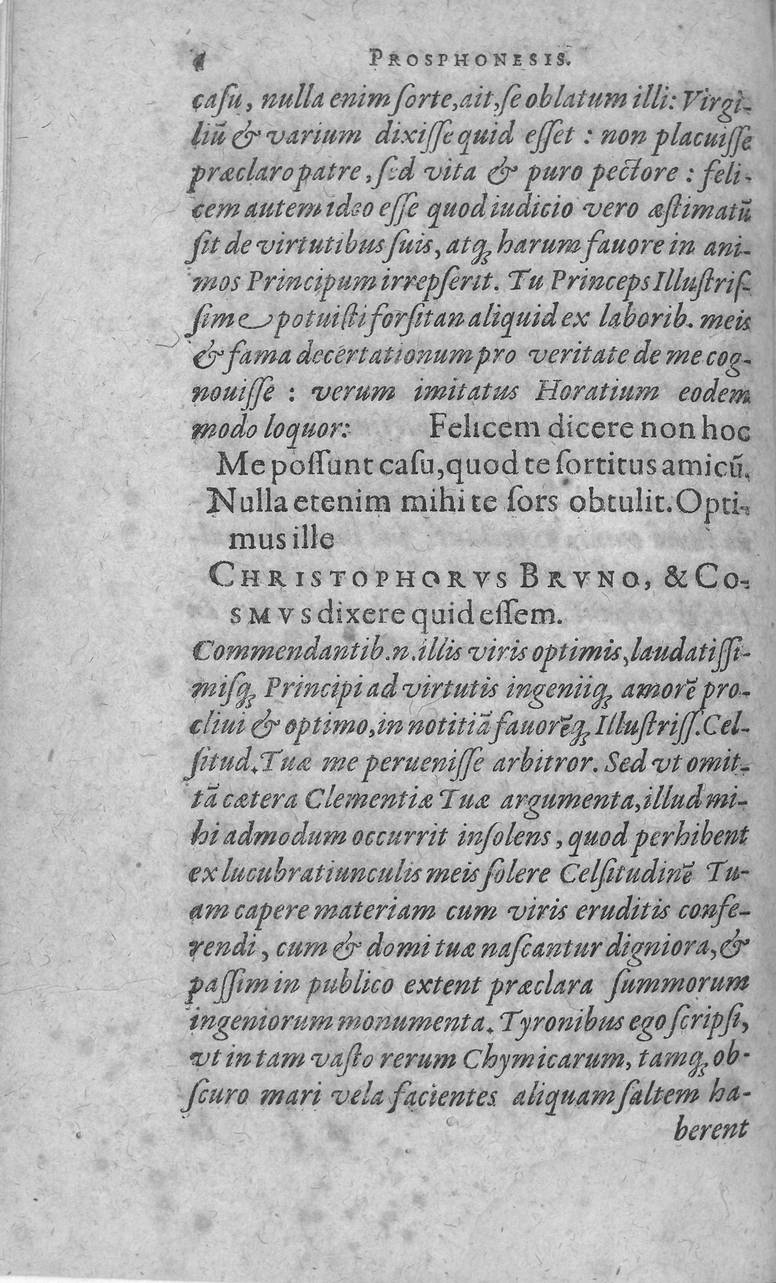 PROSPHONESIS.
caſu, nulla enim ſorte, ait, ſe oblatum illi: Virgi-
liū & varium dixiſſe quid eſſet : non placuiſſe
præclaro patre, ſed vita & puro pectore : feli-
cem autem ideo eſſe quod iudicio vero æſtimatū
ſit de virtutibus ſuis, atq; harum fauore in ani-
mos Principum irrepſerit. Tu Princeps Illuſtriſ-
ſime potuiſti forſitan aliquid ex laborib. meis
& fama decertationum pro veritate de me cog-
nouiſſe : verum imitatus Horatium eodem
modo loquor: Felicem dicere non hoc
Me poſſunt caſu, quod te ſortitus amicū.
Nulla etenim mihi te ſors obtulit. Opti-
mus ille
CHRISTOPHORVS BRVNO, & Co-
SMVS dixere quid eſſem.
Commendantib.n. illis viris optimis, laudatiſſi-
miſq; Principi ad virtutis ingeniiq; amorē pro-
cliui & optimo, in notitiā fauorēq; Illuſtriſſ. Cel-
ſitud. Tuæ me perueniſſe arbitror. Sed vt omit-
tā cætera Clementiæ Tuæ argumenta, illud mi-
hi admodum occurrit inſolens, quod perhibent
ex lucubratiunculis meis ſolere Celſitudinē Tu-
am capere materiam cum viris eruditis confe-
rendi, cum & domi tuæ naſcantur digniora, &
paſſim in publico extent præclara ſummorum
ingeniorum monumenta. Tyronibus ego ſcripſi,
vt in tam vaſto rerum Chymicarum, tamq; ob-
ſcuro mari vela facientes aliquam ſaltem ha-
berent